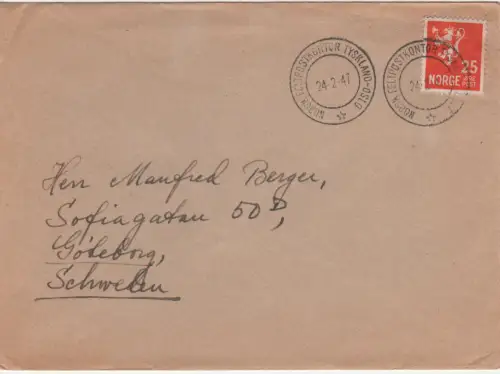 NORSK FELTPOSTKONTOR TYSKLAND-OSLO
24-2-47
NORSK FELTPOSTKONTOR
24
25
NORGE
Herr Manfred Berger,
Sofiagatan 50D,
Göteborg,
Schweden